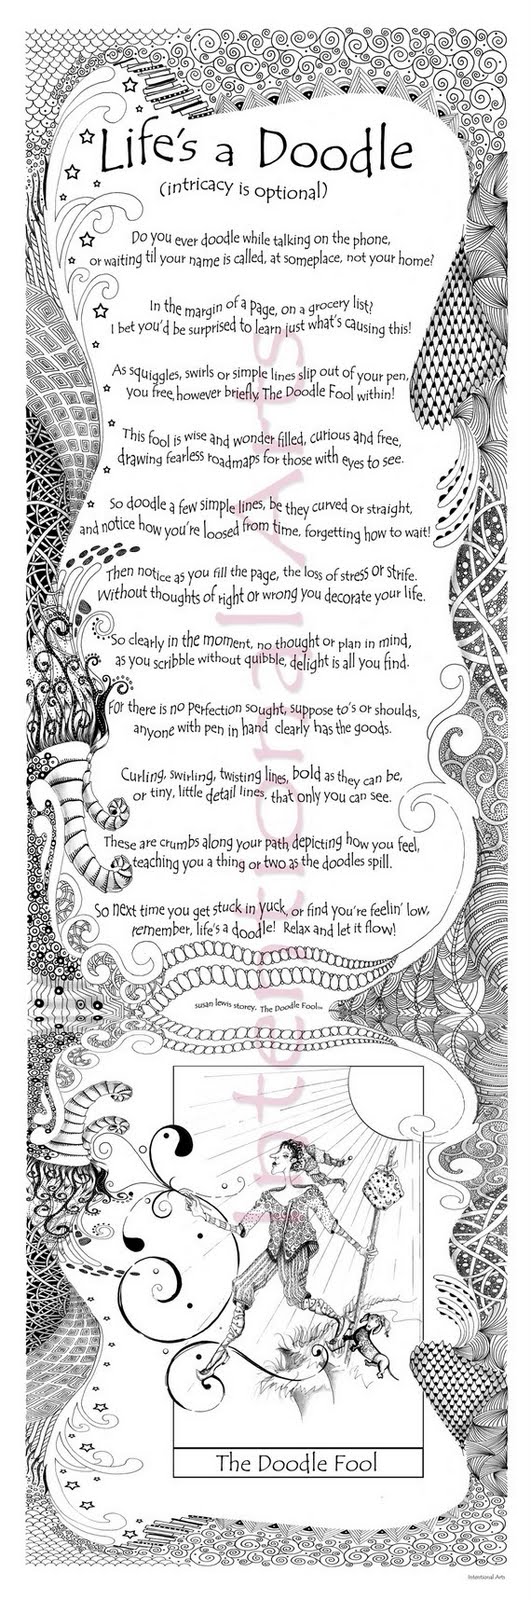 Life's a Doodle
(intricacy is optional)
Do you ever doodle while talking on the phone,
or waiting til your name is called, at someplace, not your home?
In the margin of a page, on a grocery list?
I bet you'd be surprised to learn just what's causing this!
As squiggles, swirls or simple lines slip out of your pen,
you free, however briefly, The Doodle Fool within!
This fool is wise and wonder filled, curious and free,
drawing fearless roadmaps for those with eyes to see.
So doodle a few simple lines, be they curved or straight,
and notice how you're loosed from time, forgetting how to wait!
Then notice as you fill the page, the loss of stress or strife.
Without thoughts of right or wrong you decorate your life.
So clearly in the moment, no thought or plan in mind,
as you scribble without quibble, delight is all you find.
For there is no perfection sought, suppose to's or shoulds,
anyone with pen in hand clearly has the goods.
Curling, swirling, twisting lines, bold as they can be,
or tiny, little detail lines, that only you can see.
These are crumbs along your path depicting how you feel,
teaching you a thing or two as the doodles spill.
So next time you get stuck in yuck, or find you're feelin' low,
remember, life's a doodle! Relax and let it flow!
susan lewis storey, The Doodle Fool™
The Doodle Fool
Intentional Arts
Intentional Arts